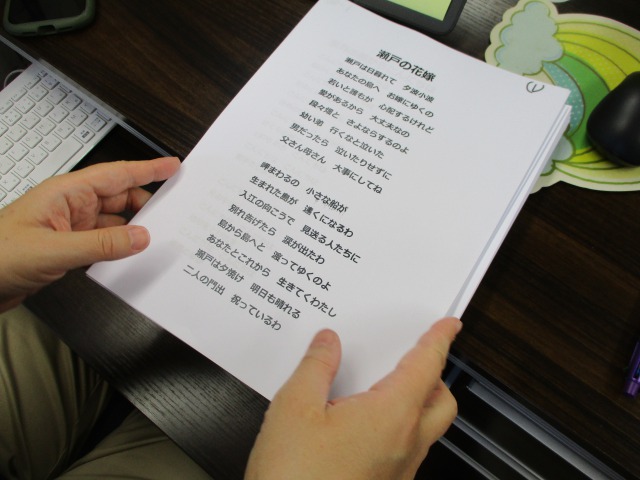 瀬戸の花嫁
瀬戸は日暮れて　夕波小波
あなたの島へ　お嫁にゆくの
おいと誰もが　心配するけれど
愛があるから　大丈夫なの
段々畑と　さよならするのよ
幼い弟　行くなと泣いた
男だったら　泣いたりせずに
父さん母さん　大事にしてね
岬まわるの　小さな船が
生まれた島が　遠くになるわ
入江の向こうで　見送る人たちに
別れ告げたら　涙が出たわ
島から島へと　渡ってゆくのよ
あなたとこれから　生きてくわたし
瀬戸は夕焼け　明日も晴れる
二人の門出　祝っているわ